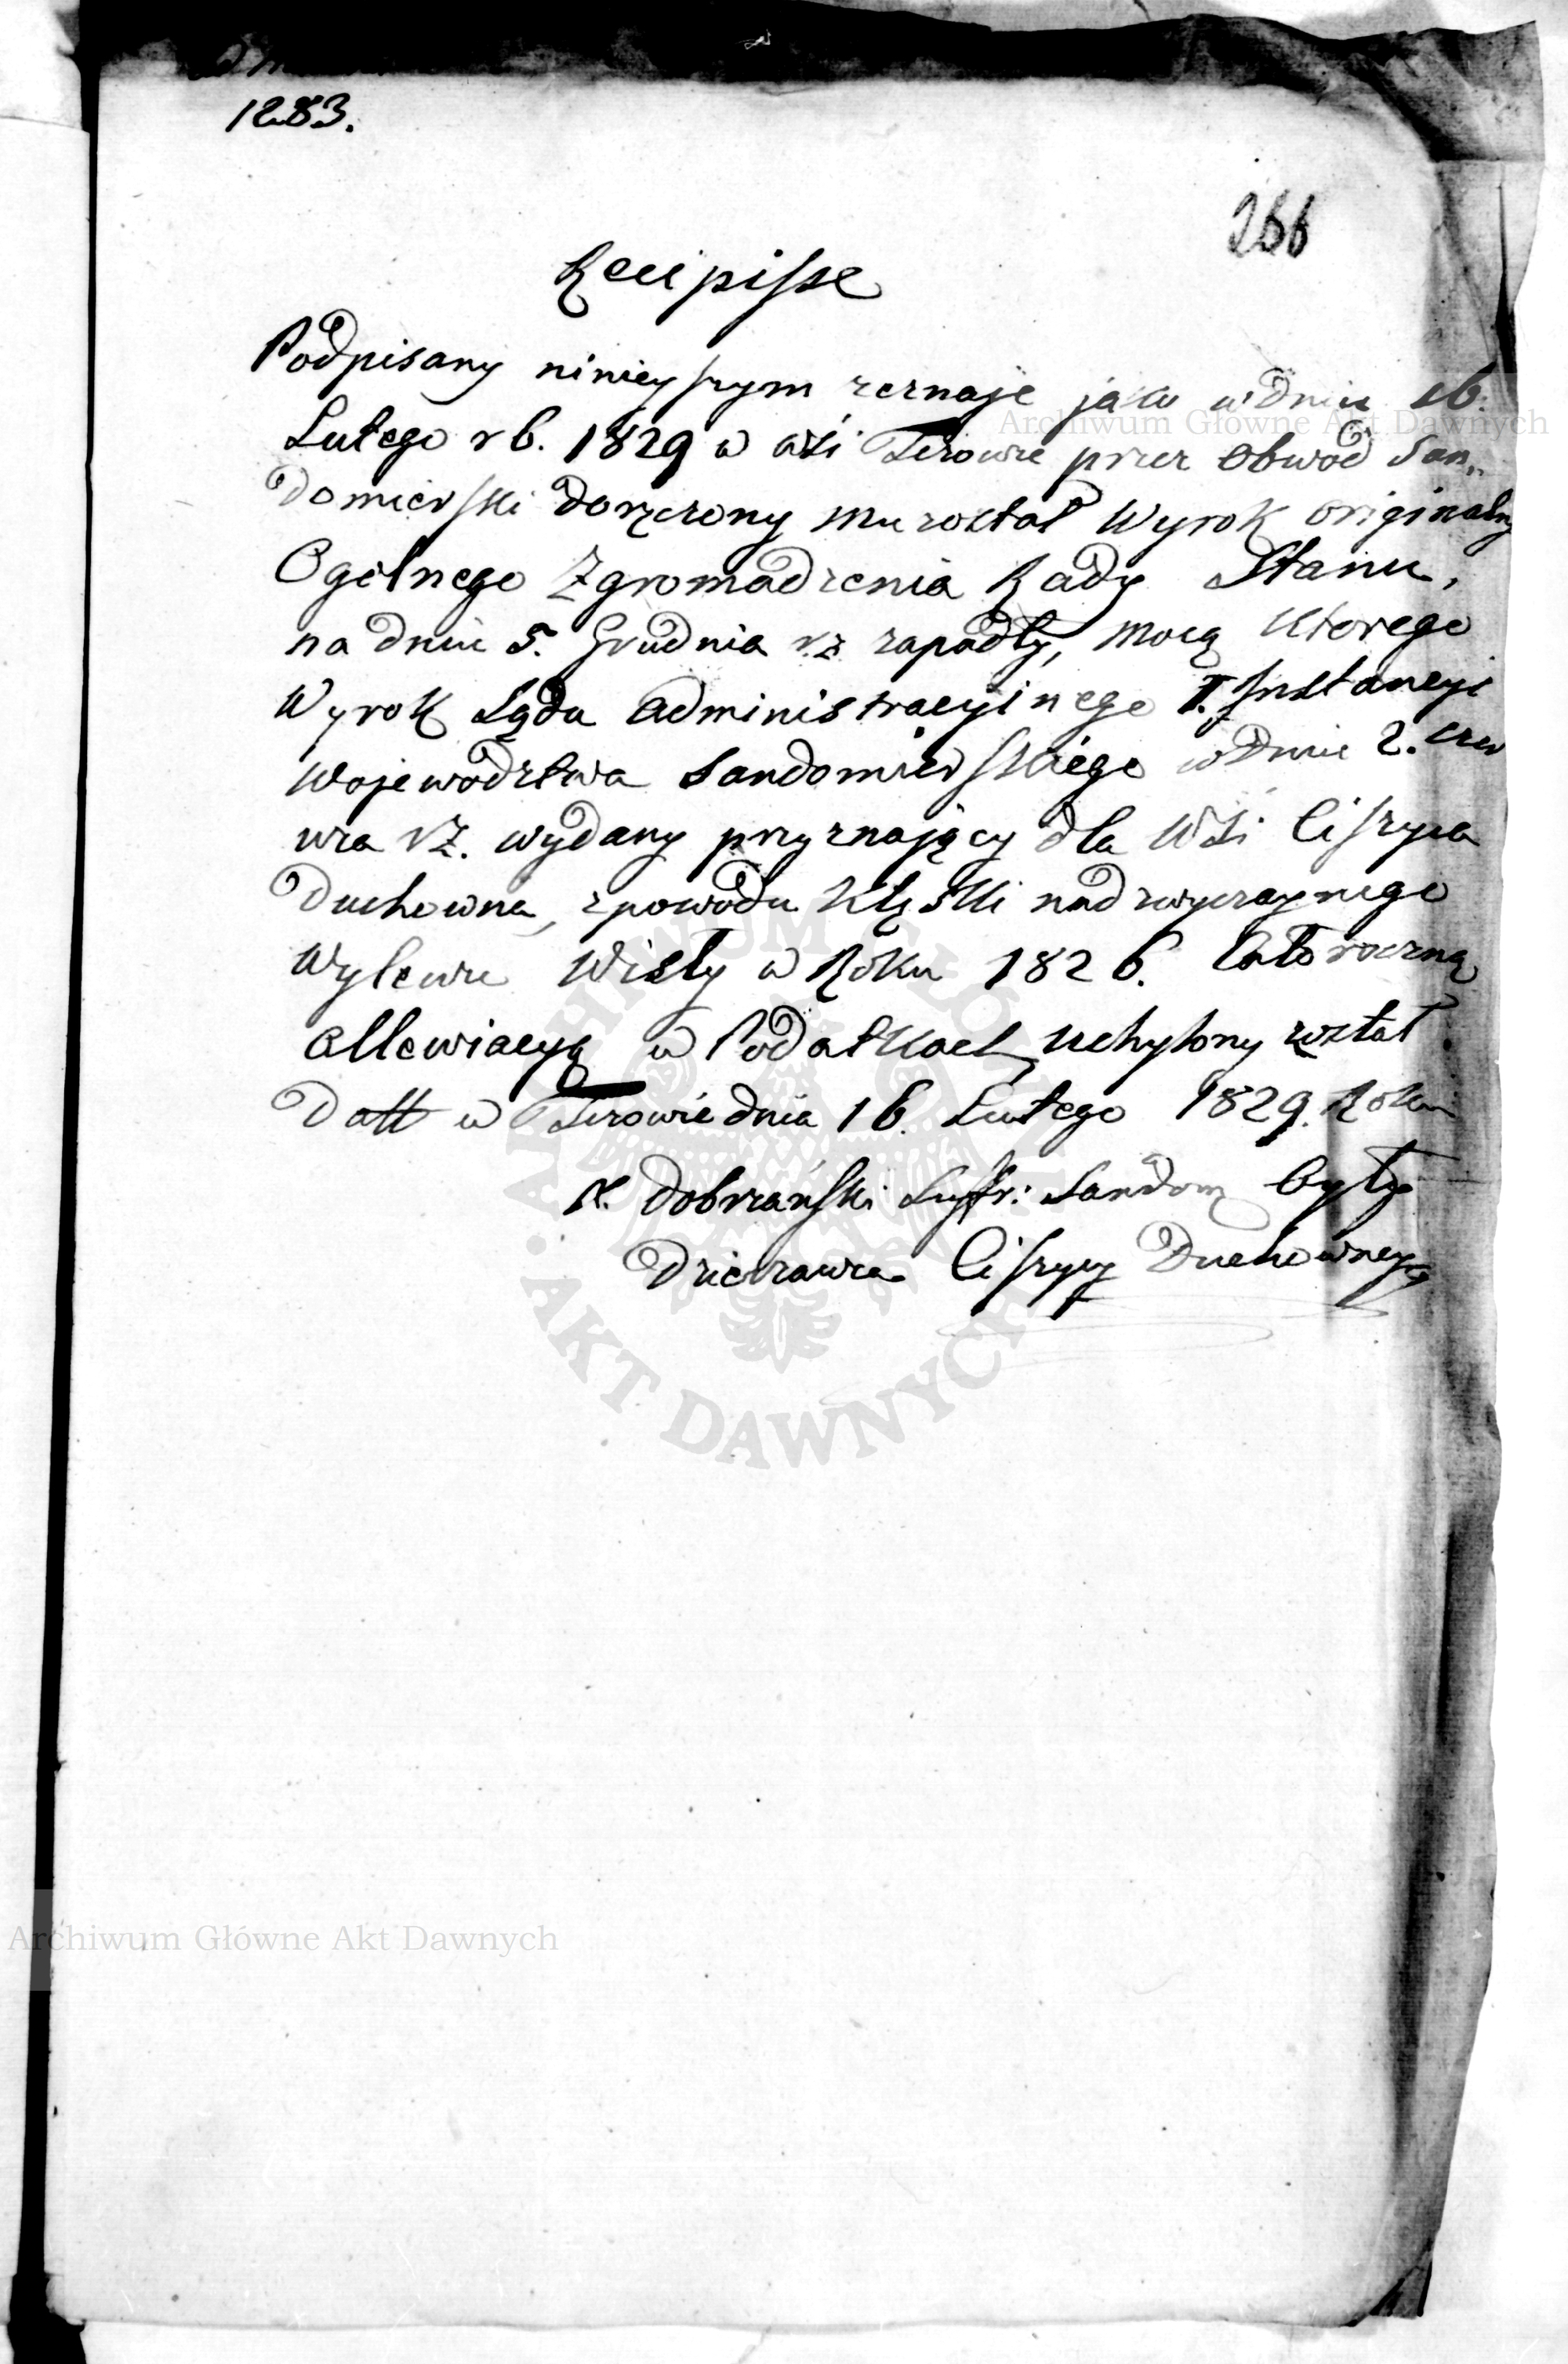 1283.
266
Recipisse
Podpisany ninieyszym zeznaje jako w dniu 16.
Archiwum Główne Akt Dawnych
Lutego r b. 1829 w wsi przez Obwod San„
domierski doręczony mu został Wyrok originalny
Ogolnego Zgromadzenia Rady Stanu,
na dniu 5. Grudnia r.z. zapadły, mocą ktorego
Wyrok Sądu Administracyinego I. Instancyi
Wojewodztwa Sandomierskiego w dniu 2. Czer
wca r.z. wydany przyznający dla Wsi Ciszyca
Duchowna, z powodu klęski nadzwyczaynego
Wylewu Wisły w Roku 1826. Całoroczną
allewiacyą w Podatkach uchylony został
Datt w dnia 16. Lutego 1829. Roku
X. Dobrzański Suffr: Sandom były
Dzierzawca Ciszycy Duchowney
ARCHIWUM GŁÓWNE AKT DAWNYCH
Archiwum Główne Akt Dawnych